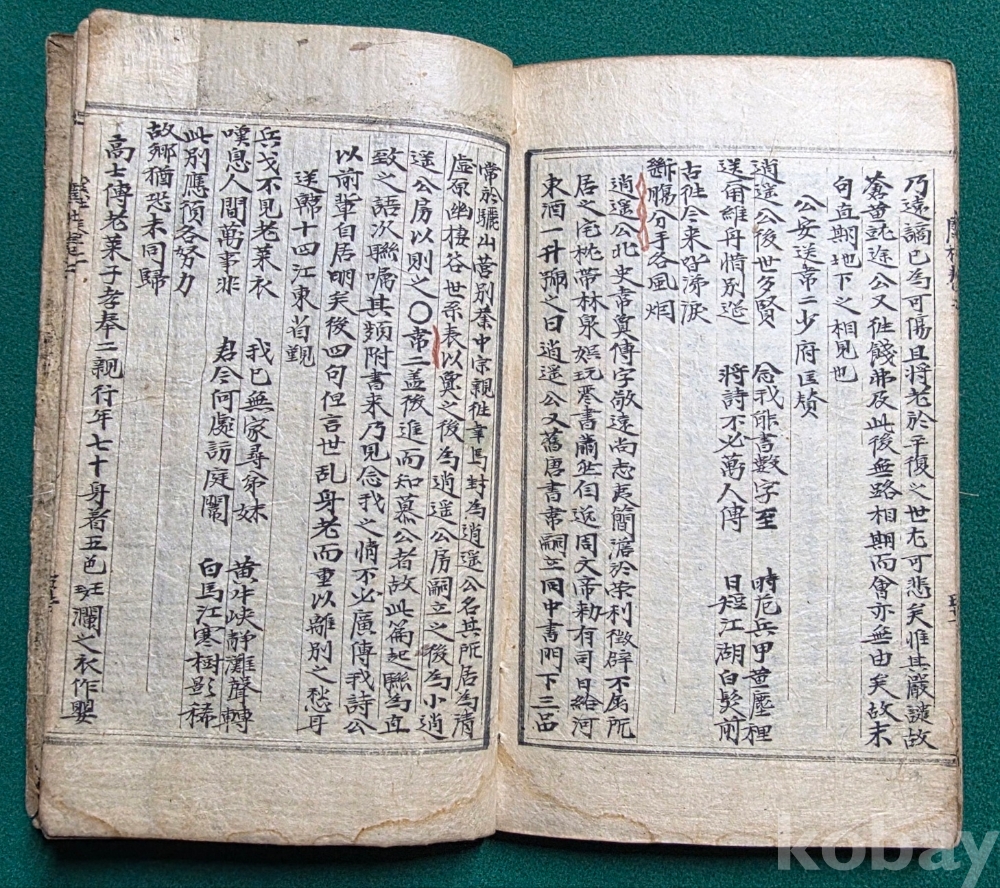 乃遠謫已為可傷且將老於平復之世尤可悲矣惟其嚴譴故
蒼黃就途公又往餞弗及此後無路相期而會亦無由矣故末
句直期地下之相見也
公安送韋二少府匡贊
逍遙公後世多賢 念我能書數字至 時危兵甲黃塵裡
送甭維舟惜別筵 將詩不必萬人傳 日短江湖白髮前
古徃今來皆涕淚
斷腸分手各風烟
逍遙公北史韋敻傳字敬遠尚志夷簡澹於榮利徵辟不屈所
居之宅枕帶林泉嬉玩琴書蕭然自逸周文帝勅有司日給河
東酒一升號之曰逍遙公又舊唐書韋嗣立同中書門下三品
嘗於驪山營別業中宗親徃幸焉封為逍遙公名其所居為清
虛原幽棲谷世系表以敻之後為逍遙公房嗣立之後為小逍
遙公房以則之〇韋二盖後進而知慕公者故此篇起聯為直
致之語次聯囑其頻附書來乃見念我之情不必廣傳我詩公
以前輩自居明矣後四句但言世乱身老而重以離別之愁耳
送韓十四江東省覲
兵戈不見老萊衣 我已無家尋弟妹 黃牛峽靜灘聲轉
嘆息人間萬事非 君今何處訪庭闈 白馬江寒樹影稀
此別應須各努力
故鄉猶恐未同歸
高士傳老萊子孝奉二親行年七十身着五色斑斕之衣作嬰
kobay